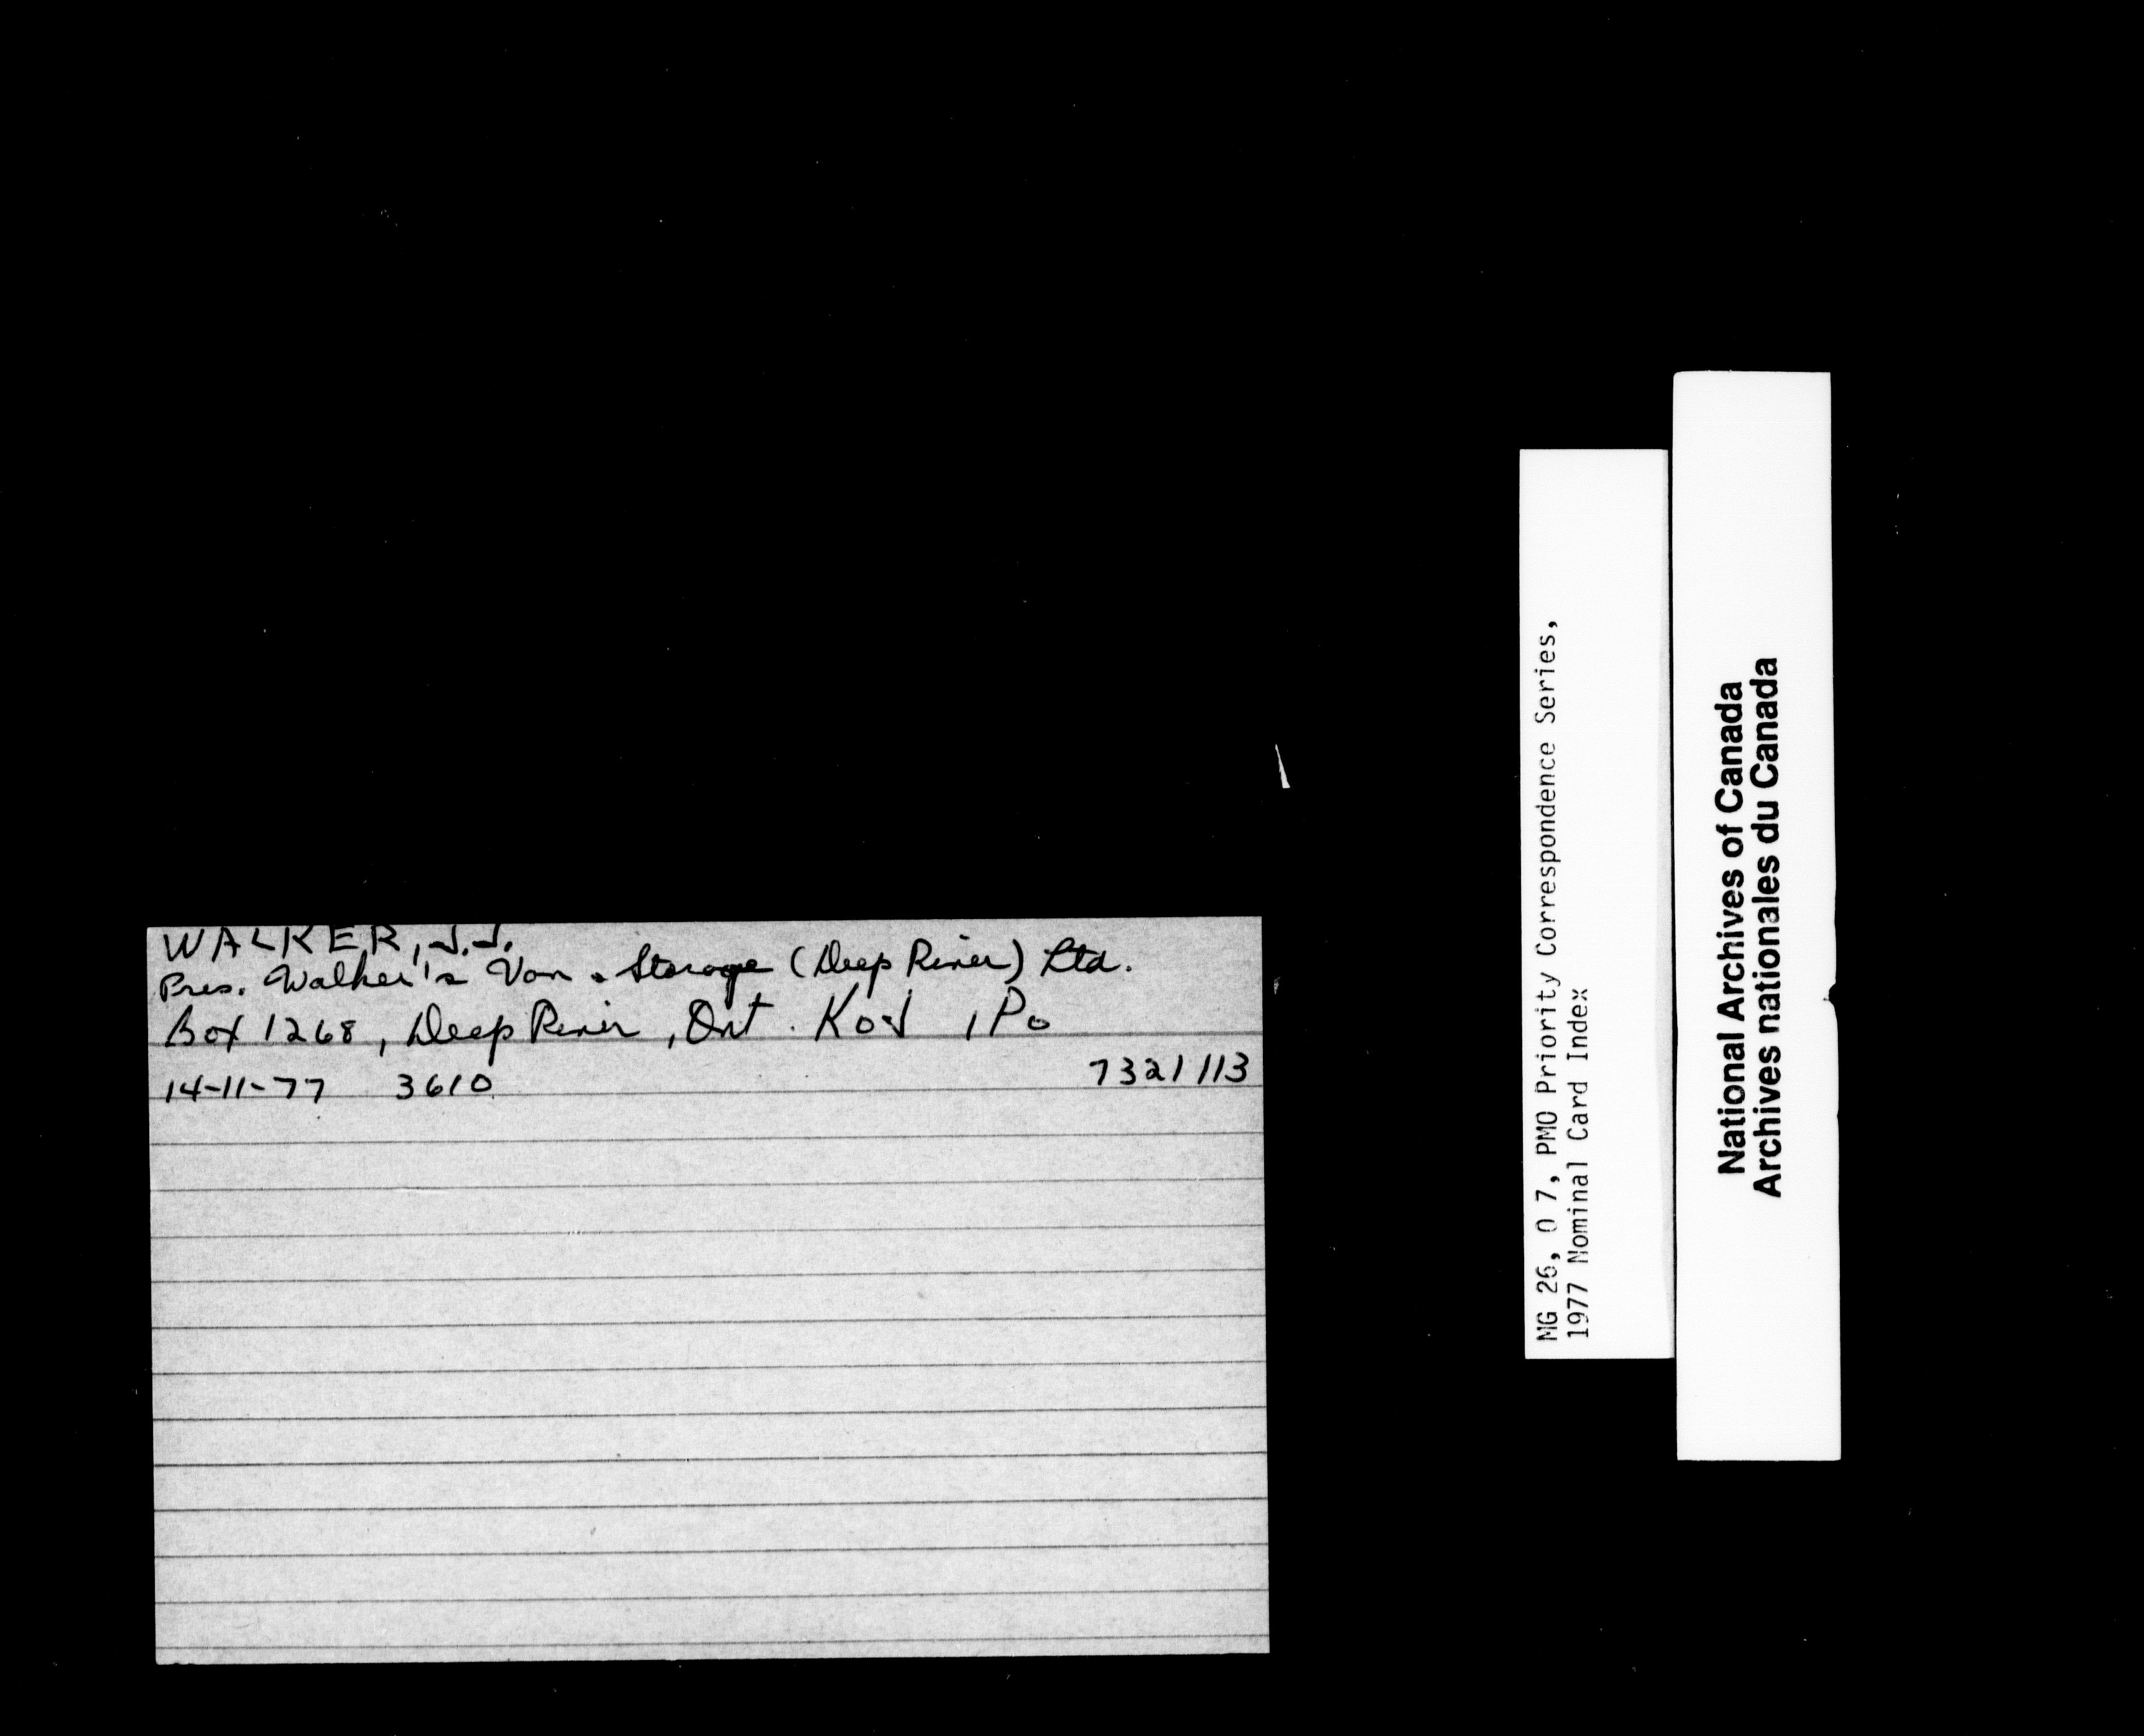 WALKER, J.J.
Pres. Walker's Van & Storage (Deep River) Ltd.
Box 1268, Deep River, Ont. K0J 1P0
14-11-77 3610 7321113
MG 26, O 7, PMO Priority Correspondence Series,
1977 Nominal Card Index
National Archives of Canada
Archives nationales du Canada